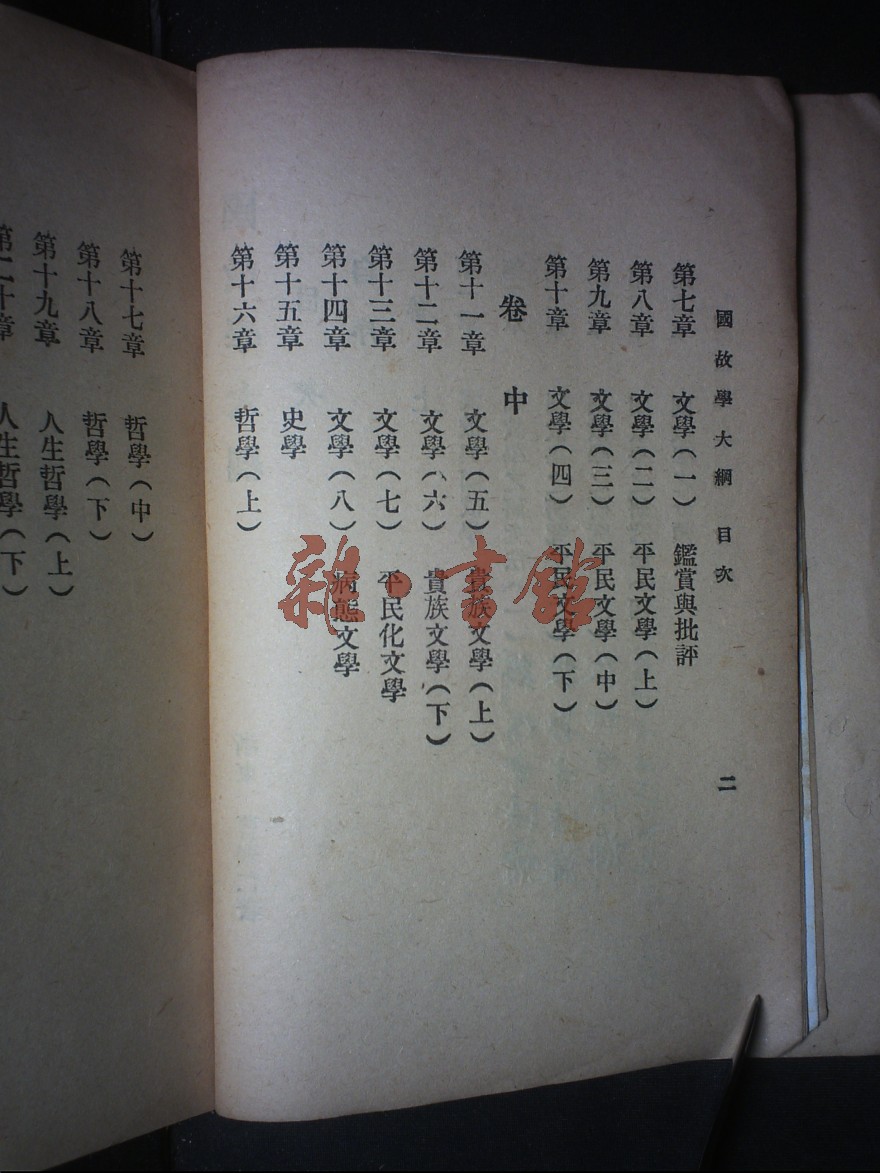 國故學大綱 目次 二
第七章 文學(一) 鑑賞與批評
第八章 文學(二) 平民文學(上)
第九章 文學(三) 平民文學(中)
第十章 文學(四) 平民文學(下)
卷中
第十一章 文學(五) 貴族文學(上)
第十二章 文學(六) 貴族文學(下)
第十三章 文學(七) 平民化文學
第十四章 文學(八) 病態文學
第十五章 史學
第十六章 哲學(上)
第十七章 哲學(中)
第十八章 哲學(下)
第十九章 人生哲學(上)
第二十章 人生哲學(下)
雜·書館